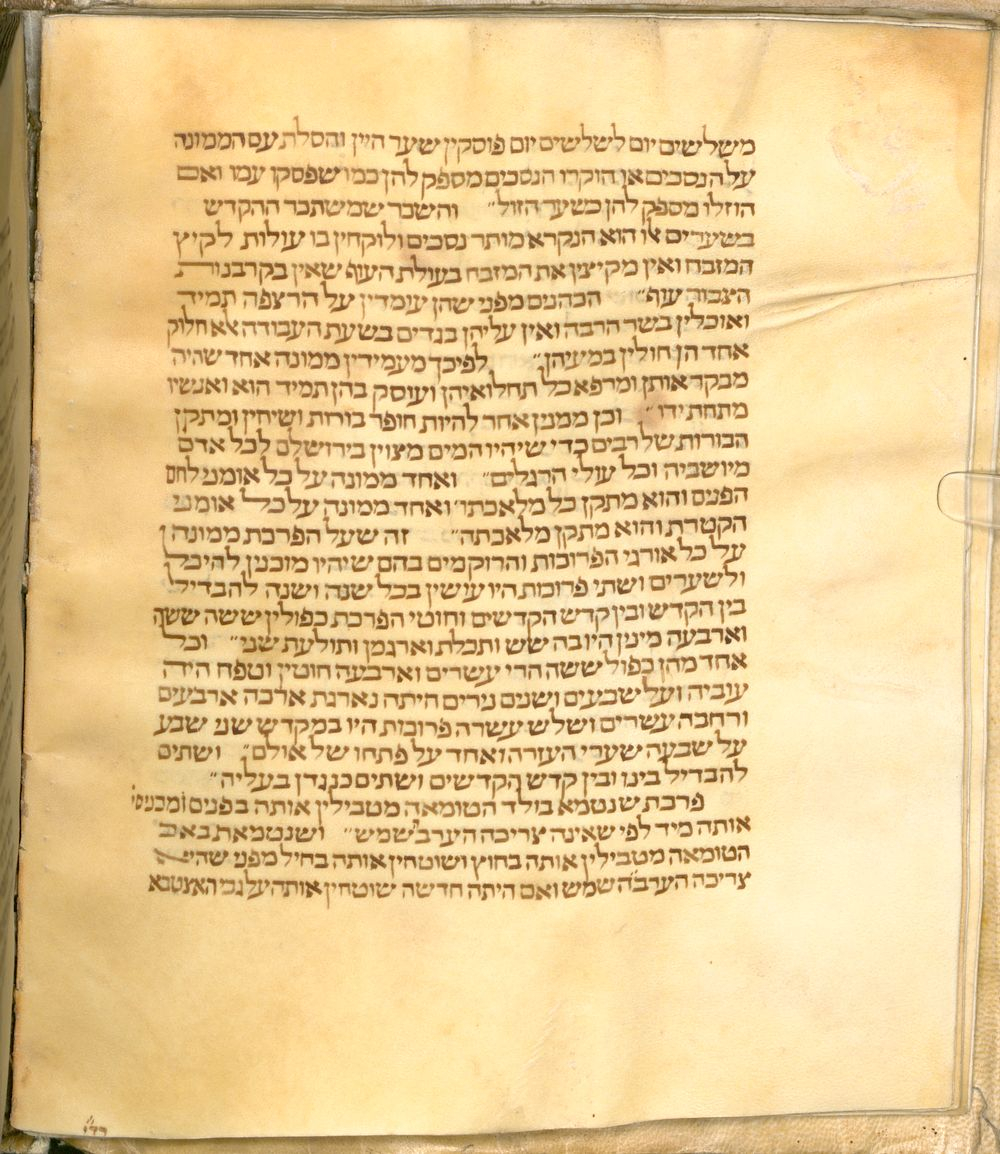 משלשים יום לשלשים יום פוסקין שער היין והסלת עם הממונה
על הנסכים אן הוקרו הנסכים מספק להן כמו שפסקו עמו ואם
הוזלו מספק להן כשער הזול״ והשכר שמשתכר ההקדש
בשערים אלו הוא הנקרא מותר נסכים ולוקחין בו עולות לקיץ
המזבח ואין מקיצין את המזבח בעולת העוף שאין בקרבנות
הצבור עוף״ הכהנים מפני שהן עומדין על הרצפה תמיד
ואוכלין בשר הרבה ואין עליהן בגדים בשעת העבודה אלא חלוק
אחד הן חולין במעיהן״ לפיכך מעמידין ממונה אחד שהיה
מבקר אותן ומרפא כל תחלואיהן ועוסק בהן תמיד הוא ואנשיו
מתחת ידו״ וכן ממנין אחר להיות חופר בורות ושיחין ומתקן
הבורות של רבים כדי שיהיו המים מצוין בירושלם לכל אדם
מיושביה וכל עולי הרגלים״ ואחד ממונה על כל אומני לחם
הפנים והוא מתקן כל מלאכתו׳ ואחד ממונה על כלל אומני
הקטרת והוא מתקן מלאכתה״ זה שעל הפרכת ממונה
על כל אורגי הפרוכות והרוקמים בהם שיהיו מוכנין להיכל
ולשערים ושתי פרוכות היו עושין בכל שנה ושנה להבדיל
בין הקדש ובין קדש הקדשים וחוטי הפרכת כפולין ששה ששה
וארבעה מינין היו בה שש ותכלת וארגמן ותולעת שני״ וכל
אחד מהן כפול ששה הרי עשרים וארבעה חוטין וטפח היה
עוביה ועל שבעים ושנים נירים היתה נארגת ארכה ארבעים
ורחבה עשרים ושלש עשרה פרוכות היו במקדש שני שבע
על שבעה שערי העזרה ואחד על פתחו של אולם״ ושתים
להבדיל בינו ובין קדש הקדשים ושתים כנגדן בעליה״
פרכת שנטמא בולד הטומאה מטבילין אותה בפנים ומכניסי
אותה מיד לפי שאינה צריכה הערב שמש״ ושנטמאת באב
הטומאה מטבילין אותה בחוץ ושוטחין אותה בחיל מפני שהיא
צריכה הערב שמש ואם היתה חדשה שוטחין אותה על גבי האצטבא